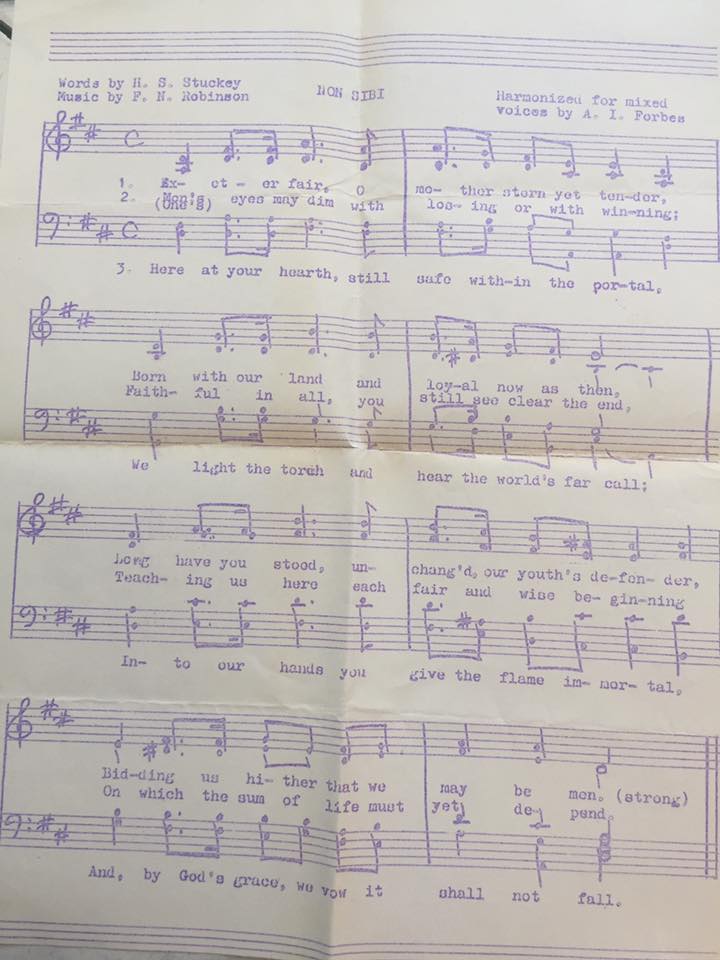 Words by H. S. Stuckey
Music by F. N. Robinson
NON SIBI
Harmonized for mixed
voices by A. I. Forbes
1. Ex- et - er fair, O mo- ther stern yet ten-der,
2. Men's eyes may dim with los- ing or with win-ning;
(One's)
3. Here at your hearth, still safe with-in the por-tal,
Born with our land and loy-al now as then,
Faith- ful in all, you still see clear the end,
We light the torch and hear the world's far call;
Long have you stood, un- chang'd, our youth's de-fen- der,
Teach- ing us here each fair and wise be- gin-ning
In- to our hands you give the flame im- mor- tal,
Bid-ding us hi- ther that we may be men. (strong)
On which the sum of life must yet de- pend.
And, by God's grace, we vow it shall not fall.